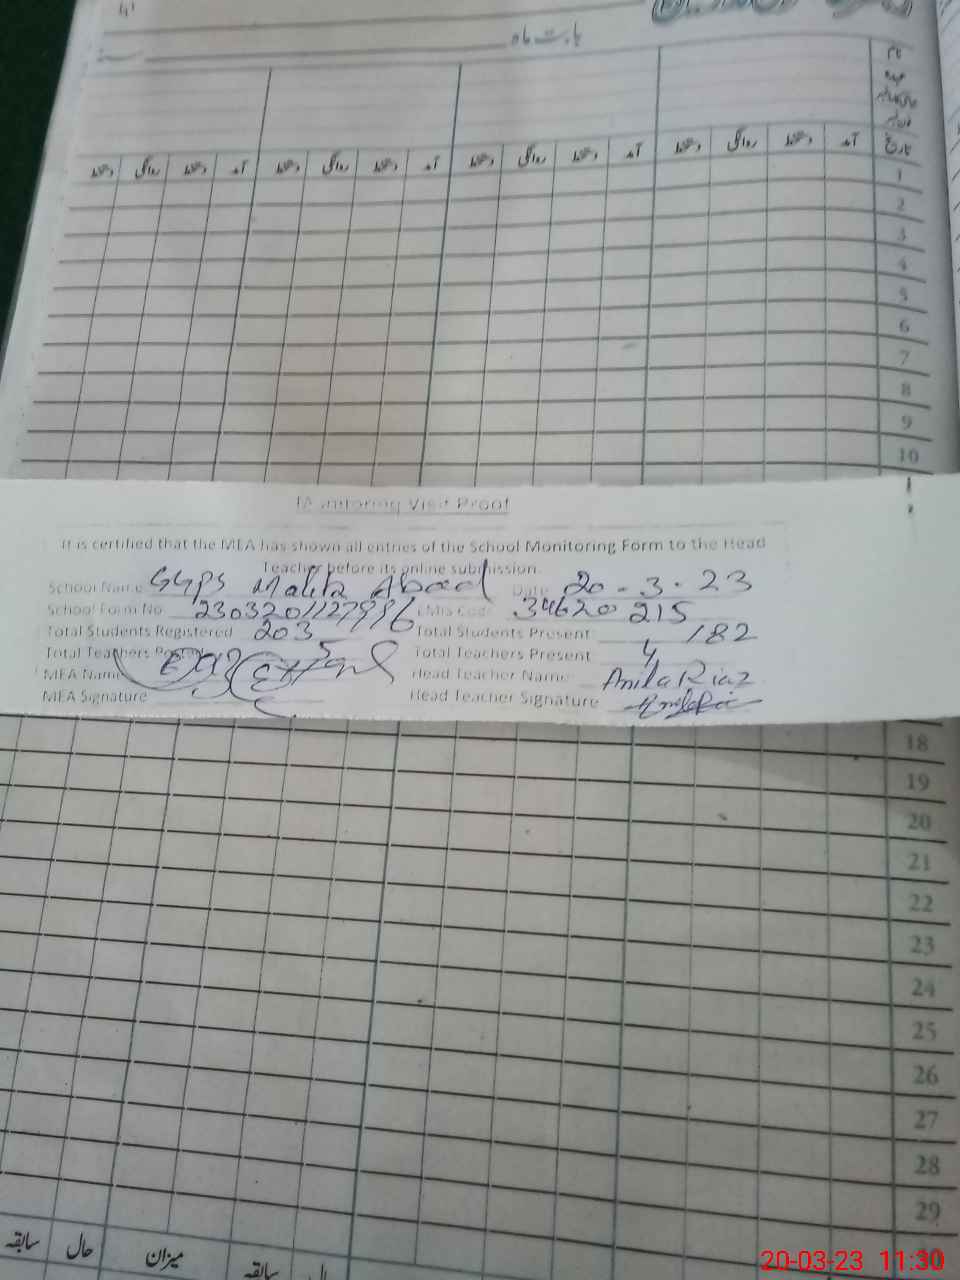 بابت ماہ سنہ
نام
عہدہ
تاریخ آمد دستخط روانگی دستخط آمد دستخط روانگی دستخط آمد دستخط روانگی دستخط آمد دستخط روانگی دستخط
1
2
3
4
5
6
7
8
9
10
Monitoring Visit Proof
It is certified that the MEA has shown all entries of the School Monitoring Form to the Head
Teacher before its online submission.
School Name GGPS Date 20-3-23
School Form No. EMIS Code 34620215
Total Students Registered 203 Total Students Present 182
Total Teachers Posted 5 Total Teachers Present 4
MEA Name Head Teacher Name Anila Riaz
MEA Signature Head Teacher Signature
18
19
20
21
22
23
24
25
26
27
28
29
میزان حال سابقہ
سابقہ
20-03-23 11:30